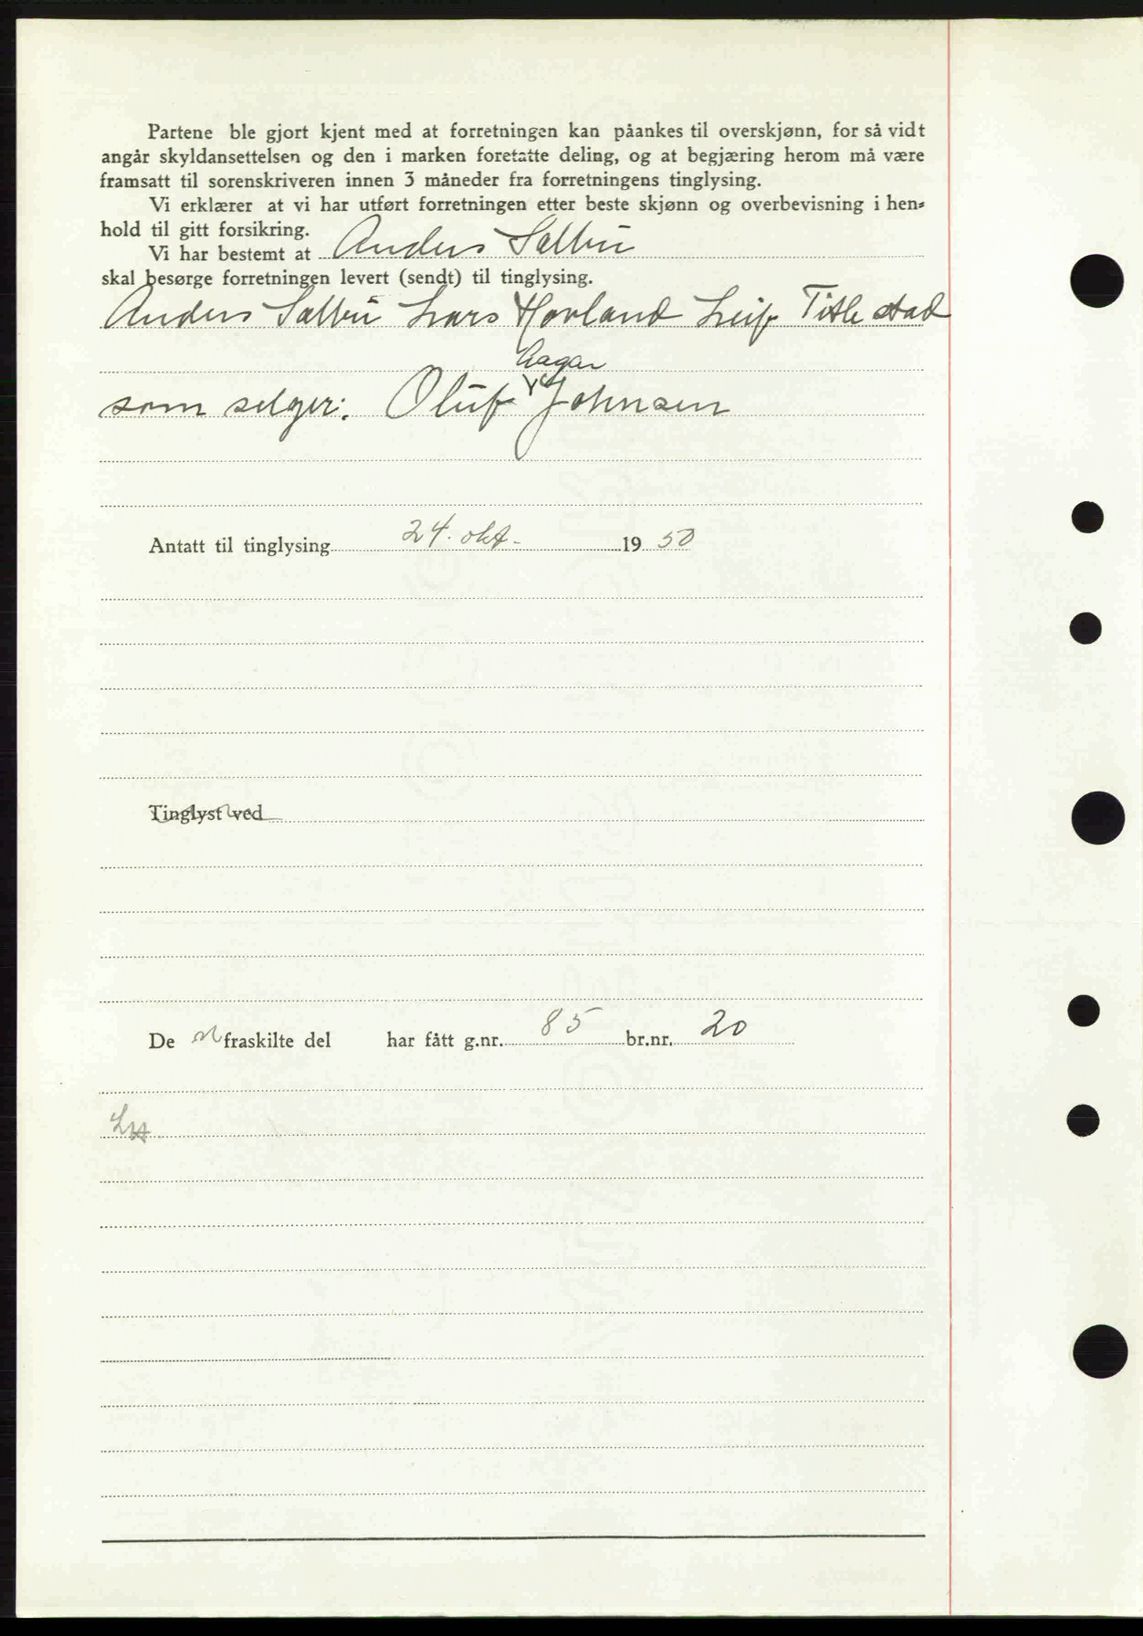 Partene ble gjort kjent med at forretningen kan påankes til overskjønn, for så vidt
angår skyldansettelsen og den i marken foretatte deling, og at begjæring herom må være
framsatt til sorenskriveren innen 3 måneder fra forretningens tinglysing.
Vi erklærer at vi har utført forretningen etter beste skjønn og overbevisning i hen-
hold til gitt forsikring.
Vi har bestemt at Anders Sælbu
skal besørge forretningen levert (sendt) til tinglysing.
Anders Sælbu Lars Hovland Leif Titlestad
Aagar
som selger: Oluf Johnsen
Antatt til tinglysing 24. okt. 1950
Tinglyst ved
De n fraskilte del har fått g.nr. 85 br.nr. 20